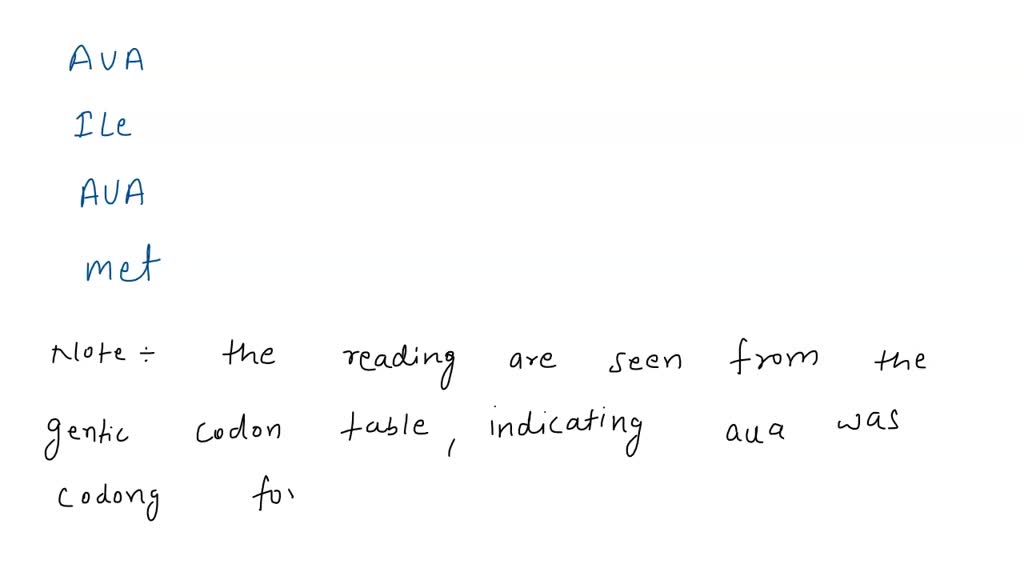 AUA
ILe
AUA
met
Note ÷ the reading are seen from the
gentic codon table, indicating aua was
codong for